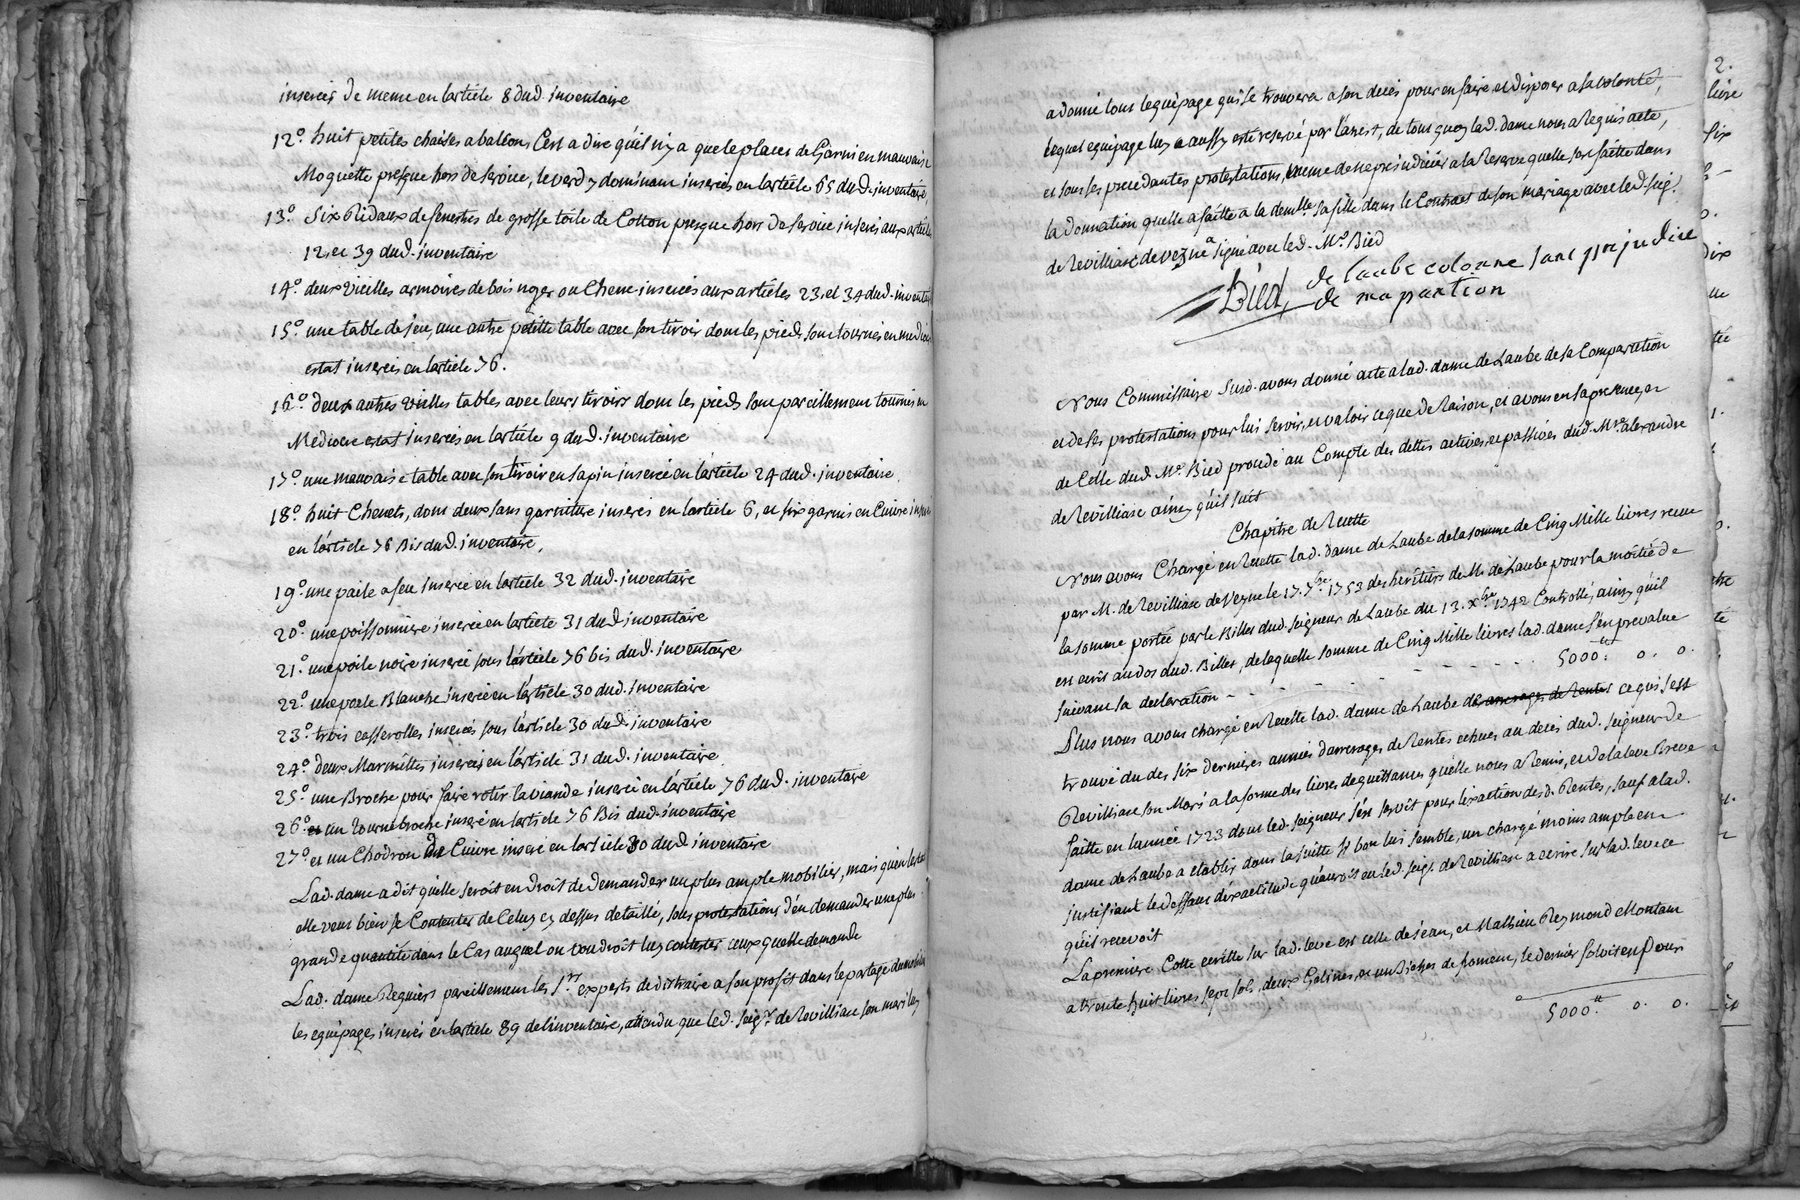 inserées de meme en larticle 8 dud. inventaire
12.° huit petites chaises a balcons C'est a dire qu'il n'y a que les places de Garni en mauvaise
Moquette presque hors de service, le verd y dominant inserées en larticle 65 dud. inventaire,
13.° Six Ridaux de fenestres de grosse toile de Cotton presque hors de service inserés aux articles
12. et 39 dud. inventaire
14.° deux vieilles armoires de bois noyer ou Chene inserées aux articles 23. et 34 dud. inventaire
15.° une table de jeu, une autre petitte table avec son tiroir dont les pieds sont tournés en mediocre
estat inserées en larticle 76.
16.° deux autres vieilles tables avec leurs tiroirs dont les pieds sont pareillement tournés en
Mediocre estat inserées en larticle 9 dud. inventaire
17.° une mauvaise table avec son tiroir en sapin inserée en l'article 24 dud. inventaire.
18.° huit Chenets, dont deux sans garniture inserés en larticle 6, et six garnis en Cuivre inserés
en l'article 76 Bis dud. inventaire,
19.° une paile a feu inserée en larticle 32 dud. inventaire
20.° une poissonniere inserée en larticle 31 dud. inventaire
21.° une poile noire inserée sous larticle 76 bis dud. inventaire
22.° une poele Blanche inserée en l'article 30 dud. inventaire
23.° trois casserolles inserées sous l'article 30 dud. inventaire
24.° deux Marmittes inserées en l'article 31 dud. inventaire
25.° une Broche pour faire rotir la viande inserée en l'article 76 dud. inventaire
26.° et un Tournebroche inseré en larticle 76 Bis dud. inventaire
27.° et un Chodron de Cuivre inseré en larticle 30 dud. inventaire
Lad. dame a dit qu'elle seroit en droit de demander un plus ample mobilier, mais
elle veut bien se Contenter de Celuy cy dessus detaillé, sous protestations d'en demander une plus
grande quantité dans le Cas auquel on voudroit luy contester ceux quelle demande
Lad. dame Requiert pareillement les S.rs experts de distraire a son profit dans le partage du mobilier
les equipages inserés en larticle 89 de l'inventaire, attendu que led. seig.r de Revilliasc son mari luy
a donné tous lequipage qui se trouvera a son decès pour en faire et disposer a sa volonté,
lequel equipage luy a aussy esté reservé par l'arrest, de tout quoy lad. dame nous a Requis acte,
et sous ses precedantes protestations, meme de ne prejudicier a la Reserve quelle sest faitte dans
la donnation quelle a faitte a la dem.lle sa fille dans le Contract de son mariage avec led. seig.r
de Revilliasc de veyne a signé avec led. M.e Bied
Bied, de laube colonne sans prejudice
de ma partion
Nous Commissaire susd. avons donné acte a lad. dame de Laube de sa Comparution
et de ses protestations pour lui servir, et valoir ce que de Raison, et avons en sa presence, et
de Celle dud. M.e Bied procedé au Compte des dettes actives, et passives dud. M.re alexandre
de Revilliasc ainsy qu'il suit
Chapitre de Recette
Nous avons Chargé en Recette lad. dame de Laube de la somme de Cinq Mille livres receue
par M. de Revilliasc de Veyne le 17. 7.bre 1753 des heritiers de M. de Laube pour la moitié de
la somme portée par le Billet dud. seigneur de Laube du 13. X.bre 1742 Controllé, ainsy qu'il
est ecrit au dos dud. Billet, de laquelle somme de Cinq Mille livres lad. dame s'en prevalue
suivant sa declaration - - - - - - - - 5000.tt 0. 0.
Plus nous avons chargé en Recette lad. dame de Laube des arrerages de Rentes ce qui s'est
trouvé du des six dernieres années d'arrerages de Rentes echues au decès dud. seigneur de
Revilliasc son Mari a la forme des livres de quittances qu'elle nous a Remis, et de la leve Breve
faitte en l'année 1723 dont led. seigneur s'est servit pour l'exaction desd. Rentes, sauf a lad.
dame de Laube a etablir dans la suitte si bon lui semble, un chargé moins ample en
justifiant le deffaut d'exactitude qu'auroit eu led. seig.r de Revilliasc a ecrire sur lad. leve ce
qu'il recevoit
La premiere Cotte ecritte sur lad. leve est celle de jean, et Mathieu Reymond Montant
a trente huit livres sept sols, deux Gelines, et un Bichet de froment, le dernier soloit en pour
5000.tt 0. 0.